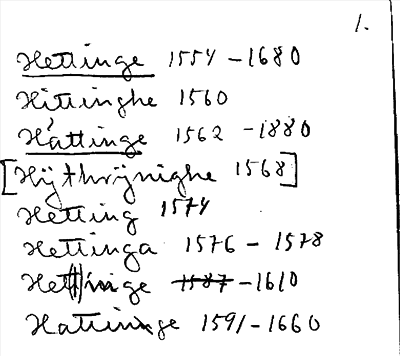 1.
Hettinge 1554 - 1680
Hittinghe 1560
Háttinge 1562 - 1880
[Hÿthrÿnighe 1568]
Hetting 1574
Hettinga 1576 - 1578
Hettinge 1587 - 1610
Hattinge 1591 - 1660